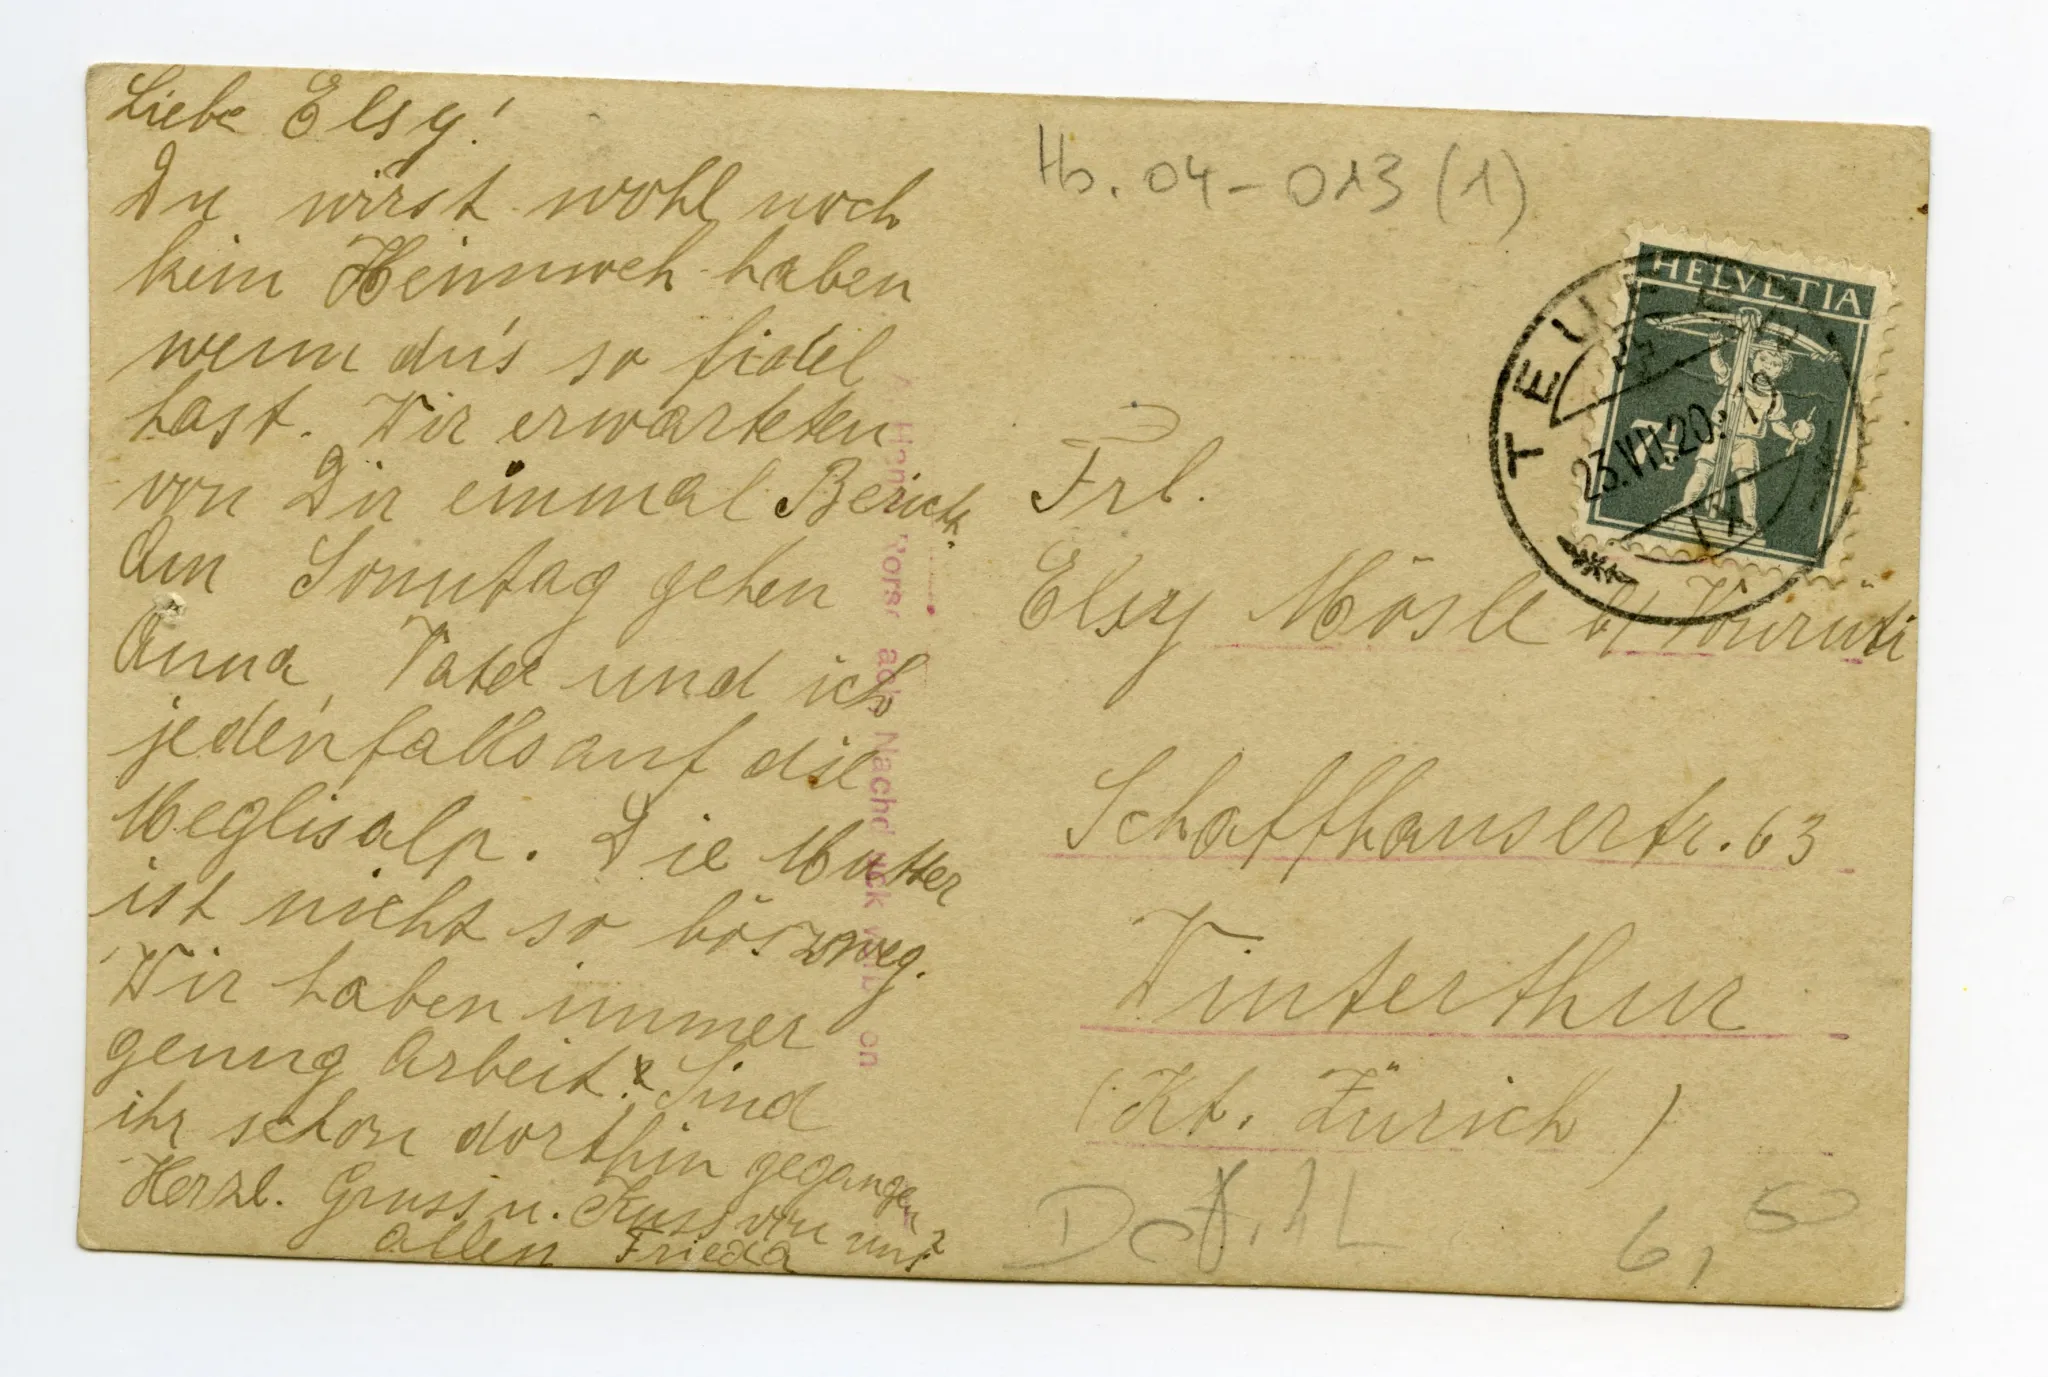 Liebe Elsy!
Du wirst wohl noch
kein Heimweh haben
wenn du's so fidel
hast. Wir erwarteten
von Dir einmal Bericht.
Am Sonntag gehen
Anna, Vater und ich
jedenfalls auf die
Meglisalp. Die Mutter
ist nicht so bös zweg.
Wir haben immer
genug Arbeit. Sind
ihr schon dorthin gegangen?
Herzl. Gruss u. Kuss von uns
allen Frieda
Hb. 04-013 (1)
HELVETIA
TEUFEN
23.VII.20.
Frl.
Elsy Mösle b/
Schaffhauserstr. 63
Winterthur
(Kt. Zürich)
6,50